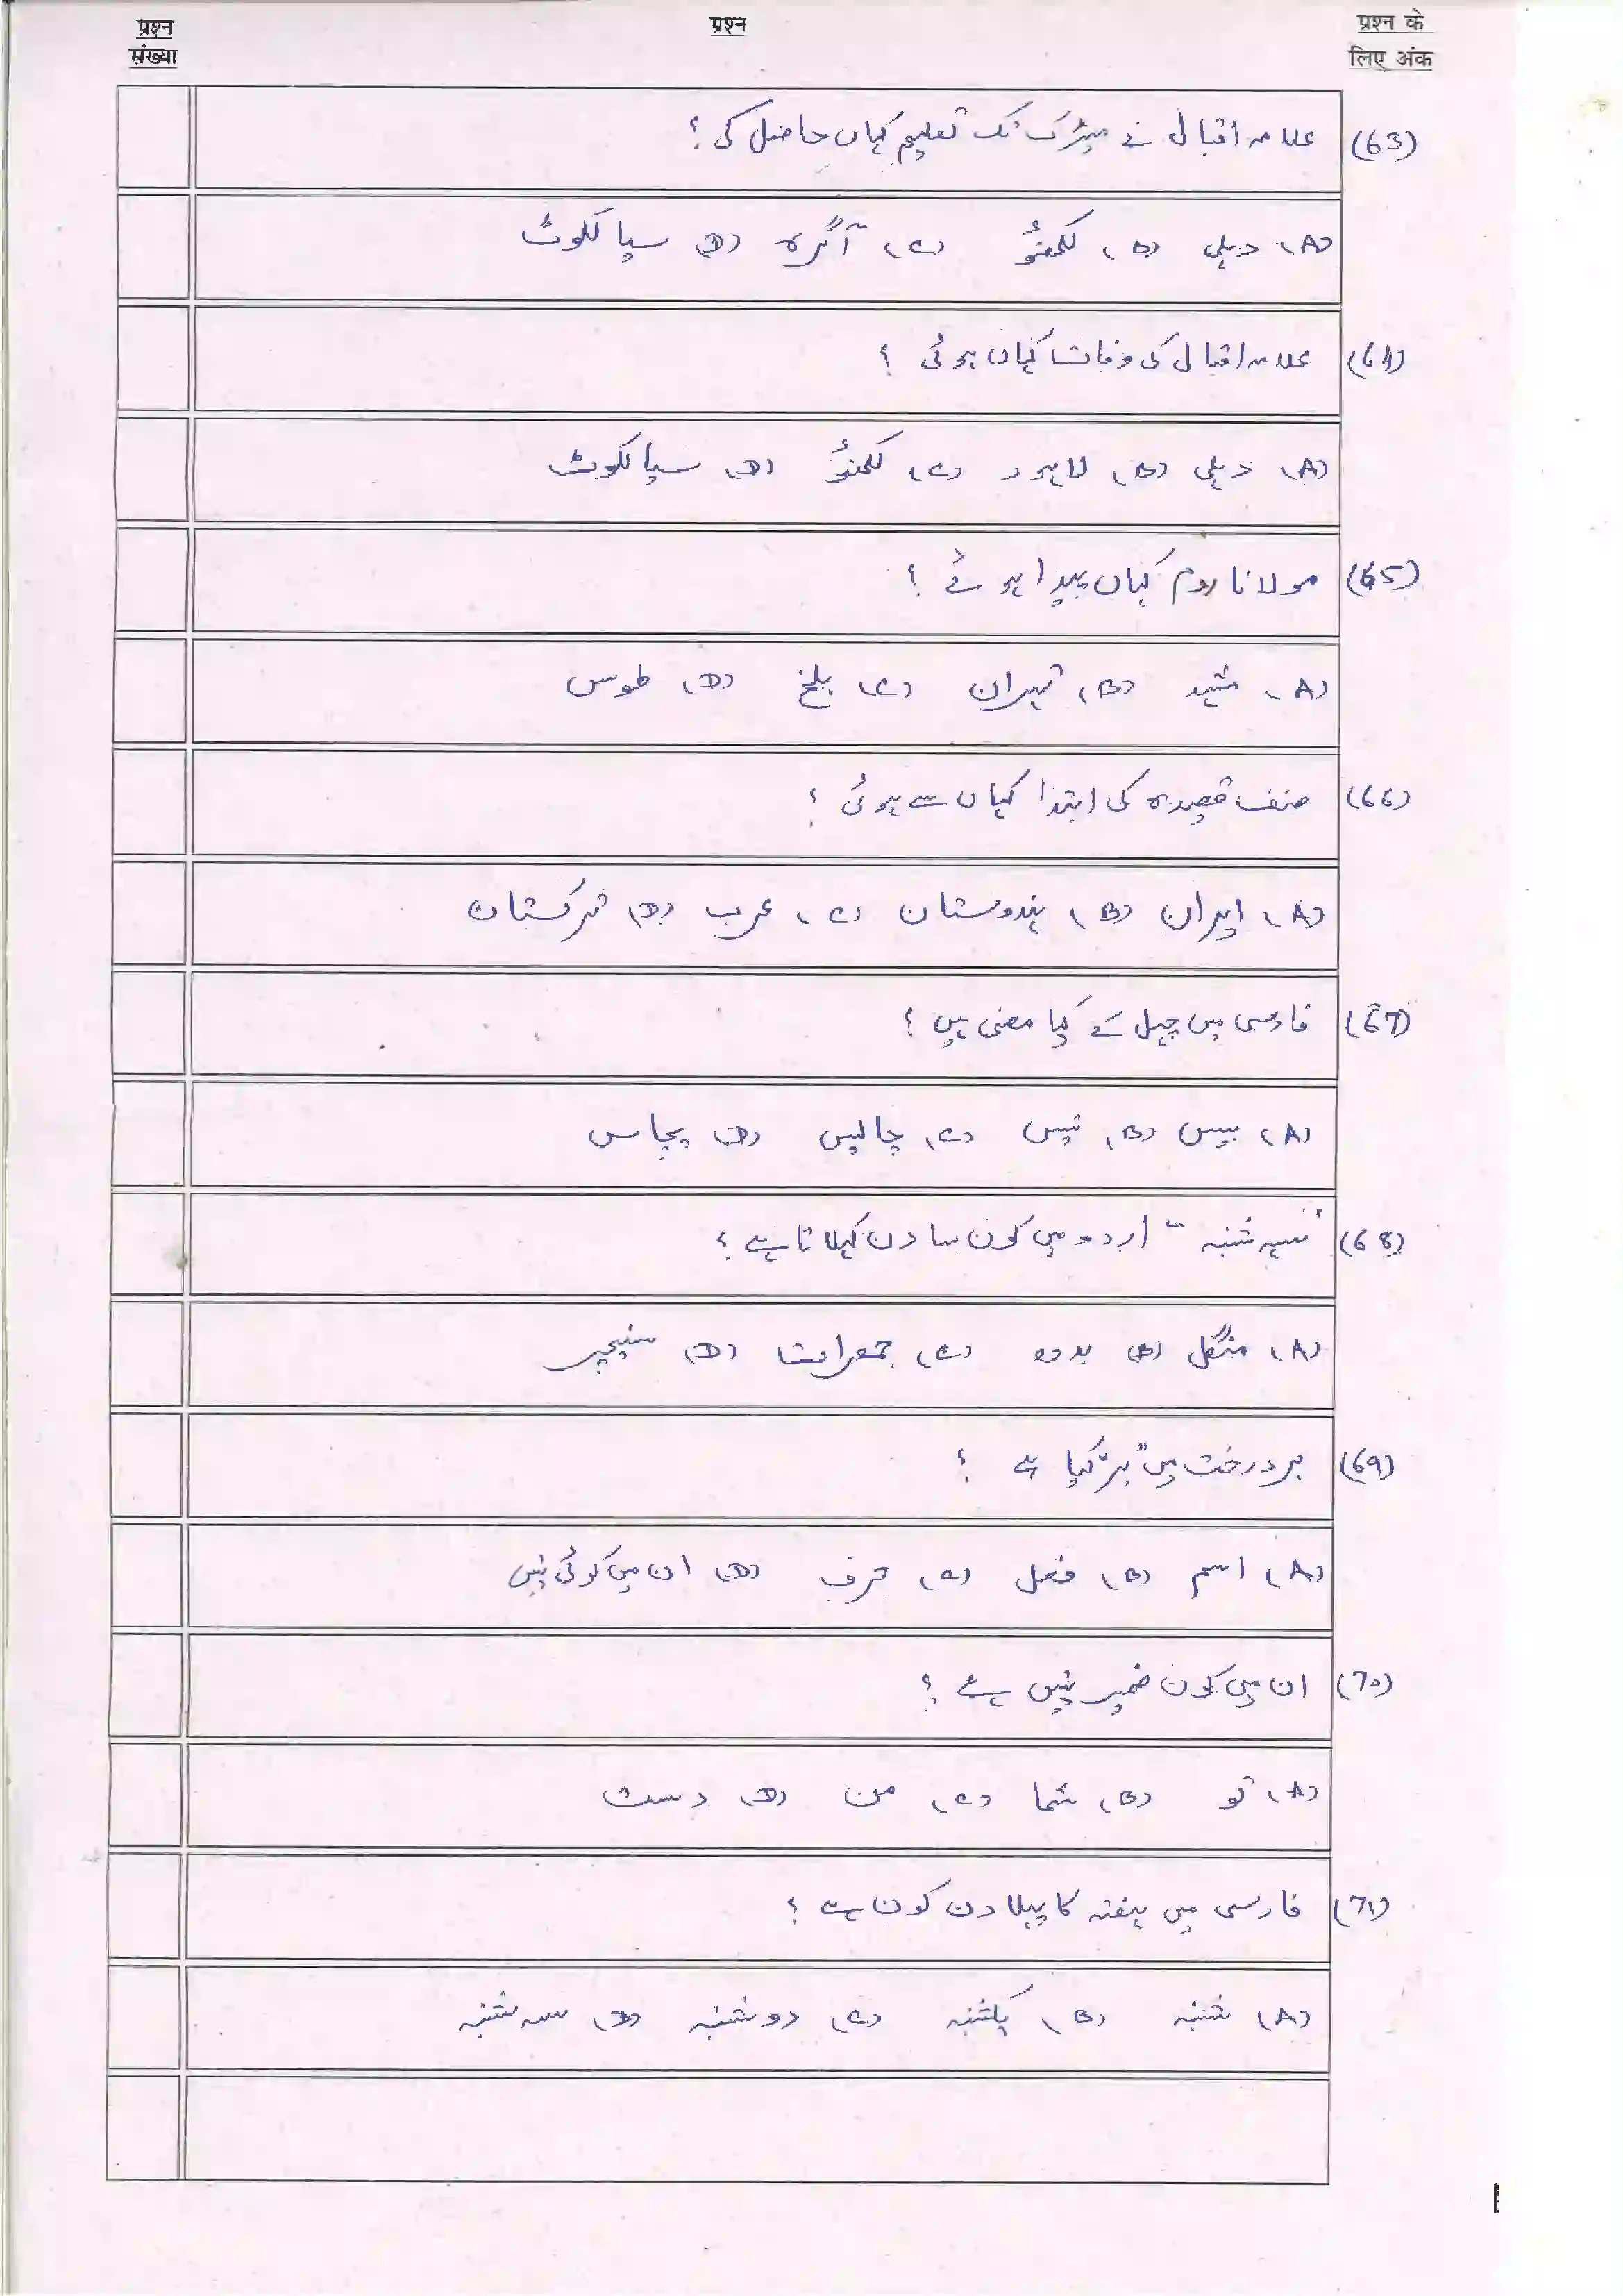 प्रश्न संख्या
प्रश्न
प्रश्न के लिए अंक
(63) علامہ اقبال نے میٹرک تک تعلیم کہاں حاصل کی ؟
(A) دہلی (B) لکھنؤ (C) آگرہ (D) سیالکوٹ
(64) علامہ اقبال کی وفات کہاں ہوئی ؟
(A) دہلی (B) لاہور (C) لکھنؤ (D) سیالکوٹ
(65) مولانا روم کہاں پیدا ہوئے ؟
(A) مشہد (B) تہران (C) بلخ (D) طوس
(66) صنف قصیدہ کی ابتدا کہاں سے ہوئی ؟
(A) ایران (B) ہندوستان (C) عرب (D) ترکستان
(67) فارسی میں چہل کے کیا معنی ہیں ؟
(A) بیس (B) تیس (C) چالیس (D) پچاس
(68) "سہ شنبہ" اردو میں کون سا دن کہلاتا ہے ؟
(A) منگل (B) بدھ (C) جمعرات (D) سنیچر
(69) بر درخت میں "بر" کیا ہے ؟
(A) اسم (B) فعل (C) حرف (D) ان میں کوئی نہیں
(70) ان میں کون ضمیر نہیں ہے ؟
(A) تو (B) شما (C) من (D) دست
(71) فارسی میں ہفتہ کا پہلا دن کون ہے ؟
(A) شنبہ (B) یکشنبہ (C) دو شنبہ (D) سہ شنبہ